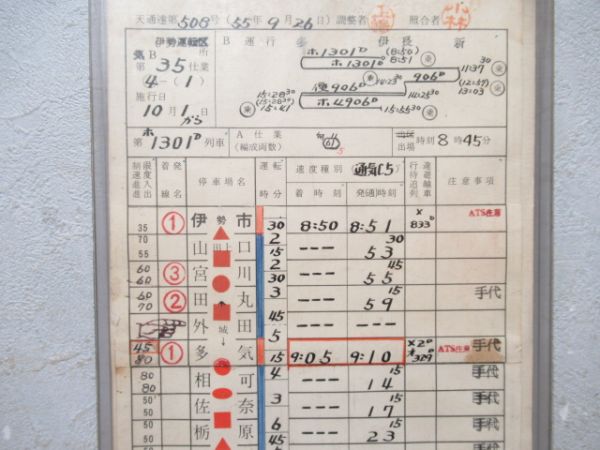 天通達第508号(55年9月26日)調整者 照合者
伊勢運転区 B 運行 多 伊 長 新
気B
第35仕業
4-(1)
施行日
10月1日から
ホ1301D (8:50)
ホ1301D 8:51
906D 11:37 30
(12:59)
13:03
15:28 30 906D 14:23 30 14:25 30
(15:28 30)
15:41 ホ4906D 15:55 30
ホ
第1301D列車 A 仕業
(編成両数) 61 5 出場 時刻8時45分
制限速度進入進出 着発線名 停車場名 運転時分 速度種別 通気C5 行違待避追越列車 注意事項
着時刻 発(通)時刻
35 ① 伊勢市 30 8:50 8:51 ×833D ATS注意
70 55 山田上口 2 15 --- 53 30
60 60 ③ 宮川 2 30 --- 55 45
60 70 ② 田丸 3 --- 59 15 手代
外城田 45 5
45 80 ① 多気 15 9:05 9:10 ATS注意 手代
80 80 相可 4 15 --- 14 15 手代
50 50 佐奈 3 --- 17 15 手代
50 50 栃原 6 45 --- 23 15 手代
50